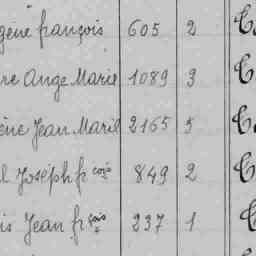 gène françois 605 2
re Ange Marie 1089 3
ène Jean Marie 2165 5
l Joseph fr çois 849 2
is Jean fr çois 237 1